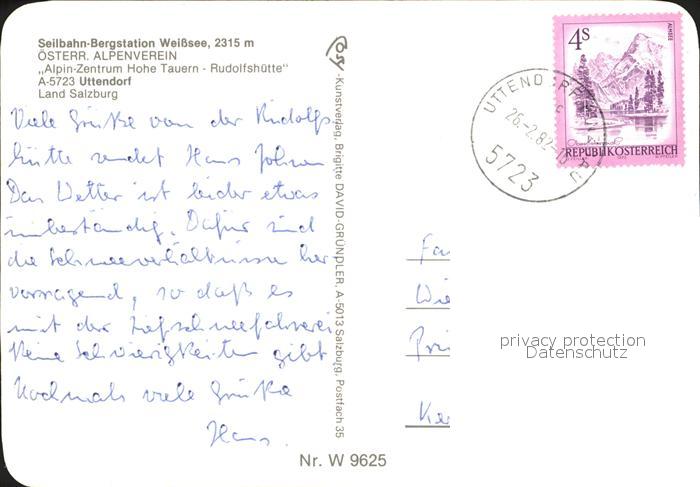 Seilbahn-Bergstation Weißsee, 2315 m
ÖSTERR. ALPENVEREIN
„Alpin-Zentrum Hohe Tauern - Rudolfshütte"
A-5723 Uttendorf
Land Salzburg
Viele Grüße von der Rudolfs-
hütte sendet Hans
Das Wetter ist leider etwas
unbeständig. Dafür sind
die Schneeverhältnisse her
vorragend, so daß es
mit der Tiefschneefahrerei
keine Schwierigkeiten gibt
Nochmals viele Grüße
Hans.
-Kunstverlag, Brigitte DAVID-GRÜNDLER, A-5013 Salzburg, Postfach 35
Nr. W 9625
4S
ALMSEE
REPUBLIK ÖSTERREICH
UTTEND
26.-2.82
5723
Fa
Wie
Pri
privacy protection
Datenschutz